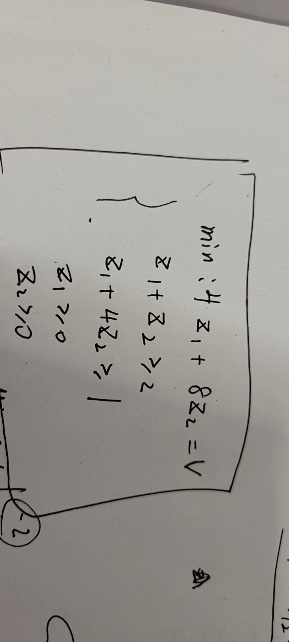 min : 4 z₁ + 8z₂ = v
z₁ + z₂ ≥ 2
z₁ + 4z₂ ≥ 1
z₁ ≥ 0
z₂ ≥ 0
-2